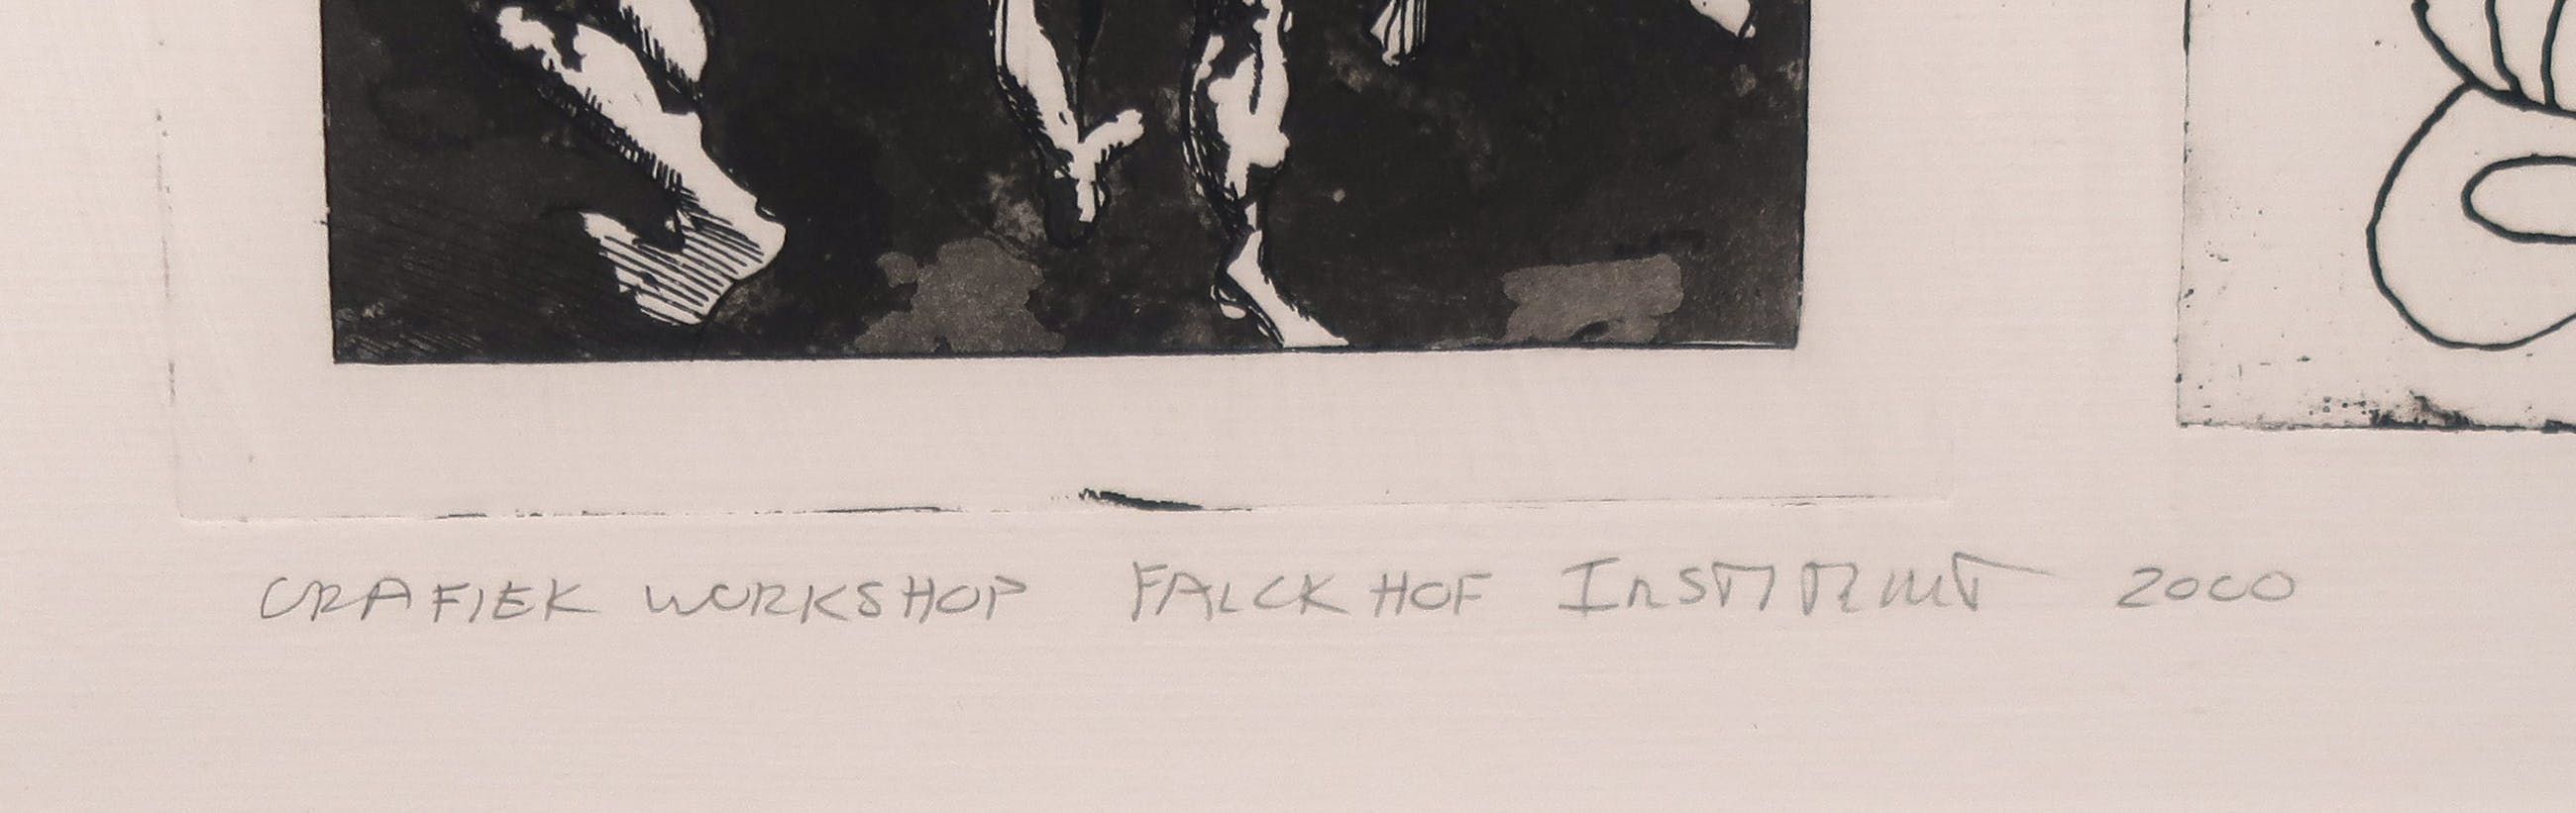 GRAFIEK WORKSHOP FALCKHOF INSTITUUT 2000